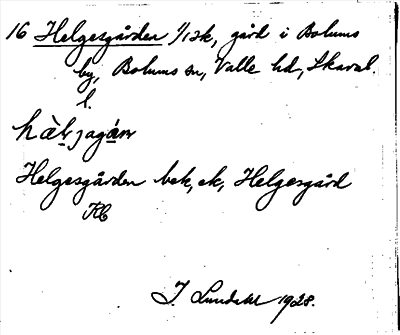 16 Helgesgården 1/1 sk, gård i Bolums
by, Bolums sn, Valle hd, Skarab.
l.
hæ̀ljagán
Helgesgården bek, ek, Helgesgård
Kb
J. Lundahl 1928.